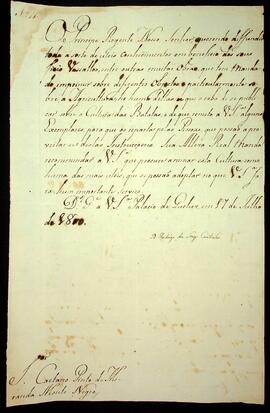 O Principe Regente Nosso Senhor, querendo diffundir
toda a sorte de uteis conhecimentos em beneficio dos seus
fieis Vassallos, entre outras muitas Obras, que tem mandado
imprimir sobre differentes Objectos, e particularmente so-
bre a Agricultura, he huma dellas, a que acaba de se publi-
car sobre a Cultura das Batatas, e de que remeto a V. S.ª alguns
Exemplares, para que os reparta pelas Pessoas, que possão apro-
veitar-se destas Instrucçoens. Sua Alteza Real manda
recommendar a V. S.ª que procure animar esta Cultura como
huma das mais uteis, que se possão adoptar, no que V. S.ª fa-
rá hum importante serviço.
D.s G.e a V. S.ª Palacio de Queluz em 17 de Julho
de 1800.
D. Rodrigo de Souza Coutinho
S.r Caetano Pinto de Mi-
randa Monte Negro.